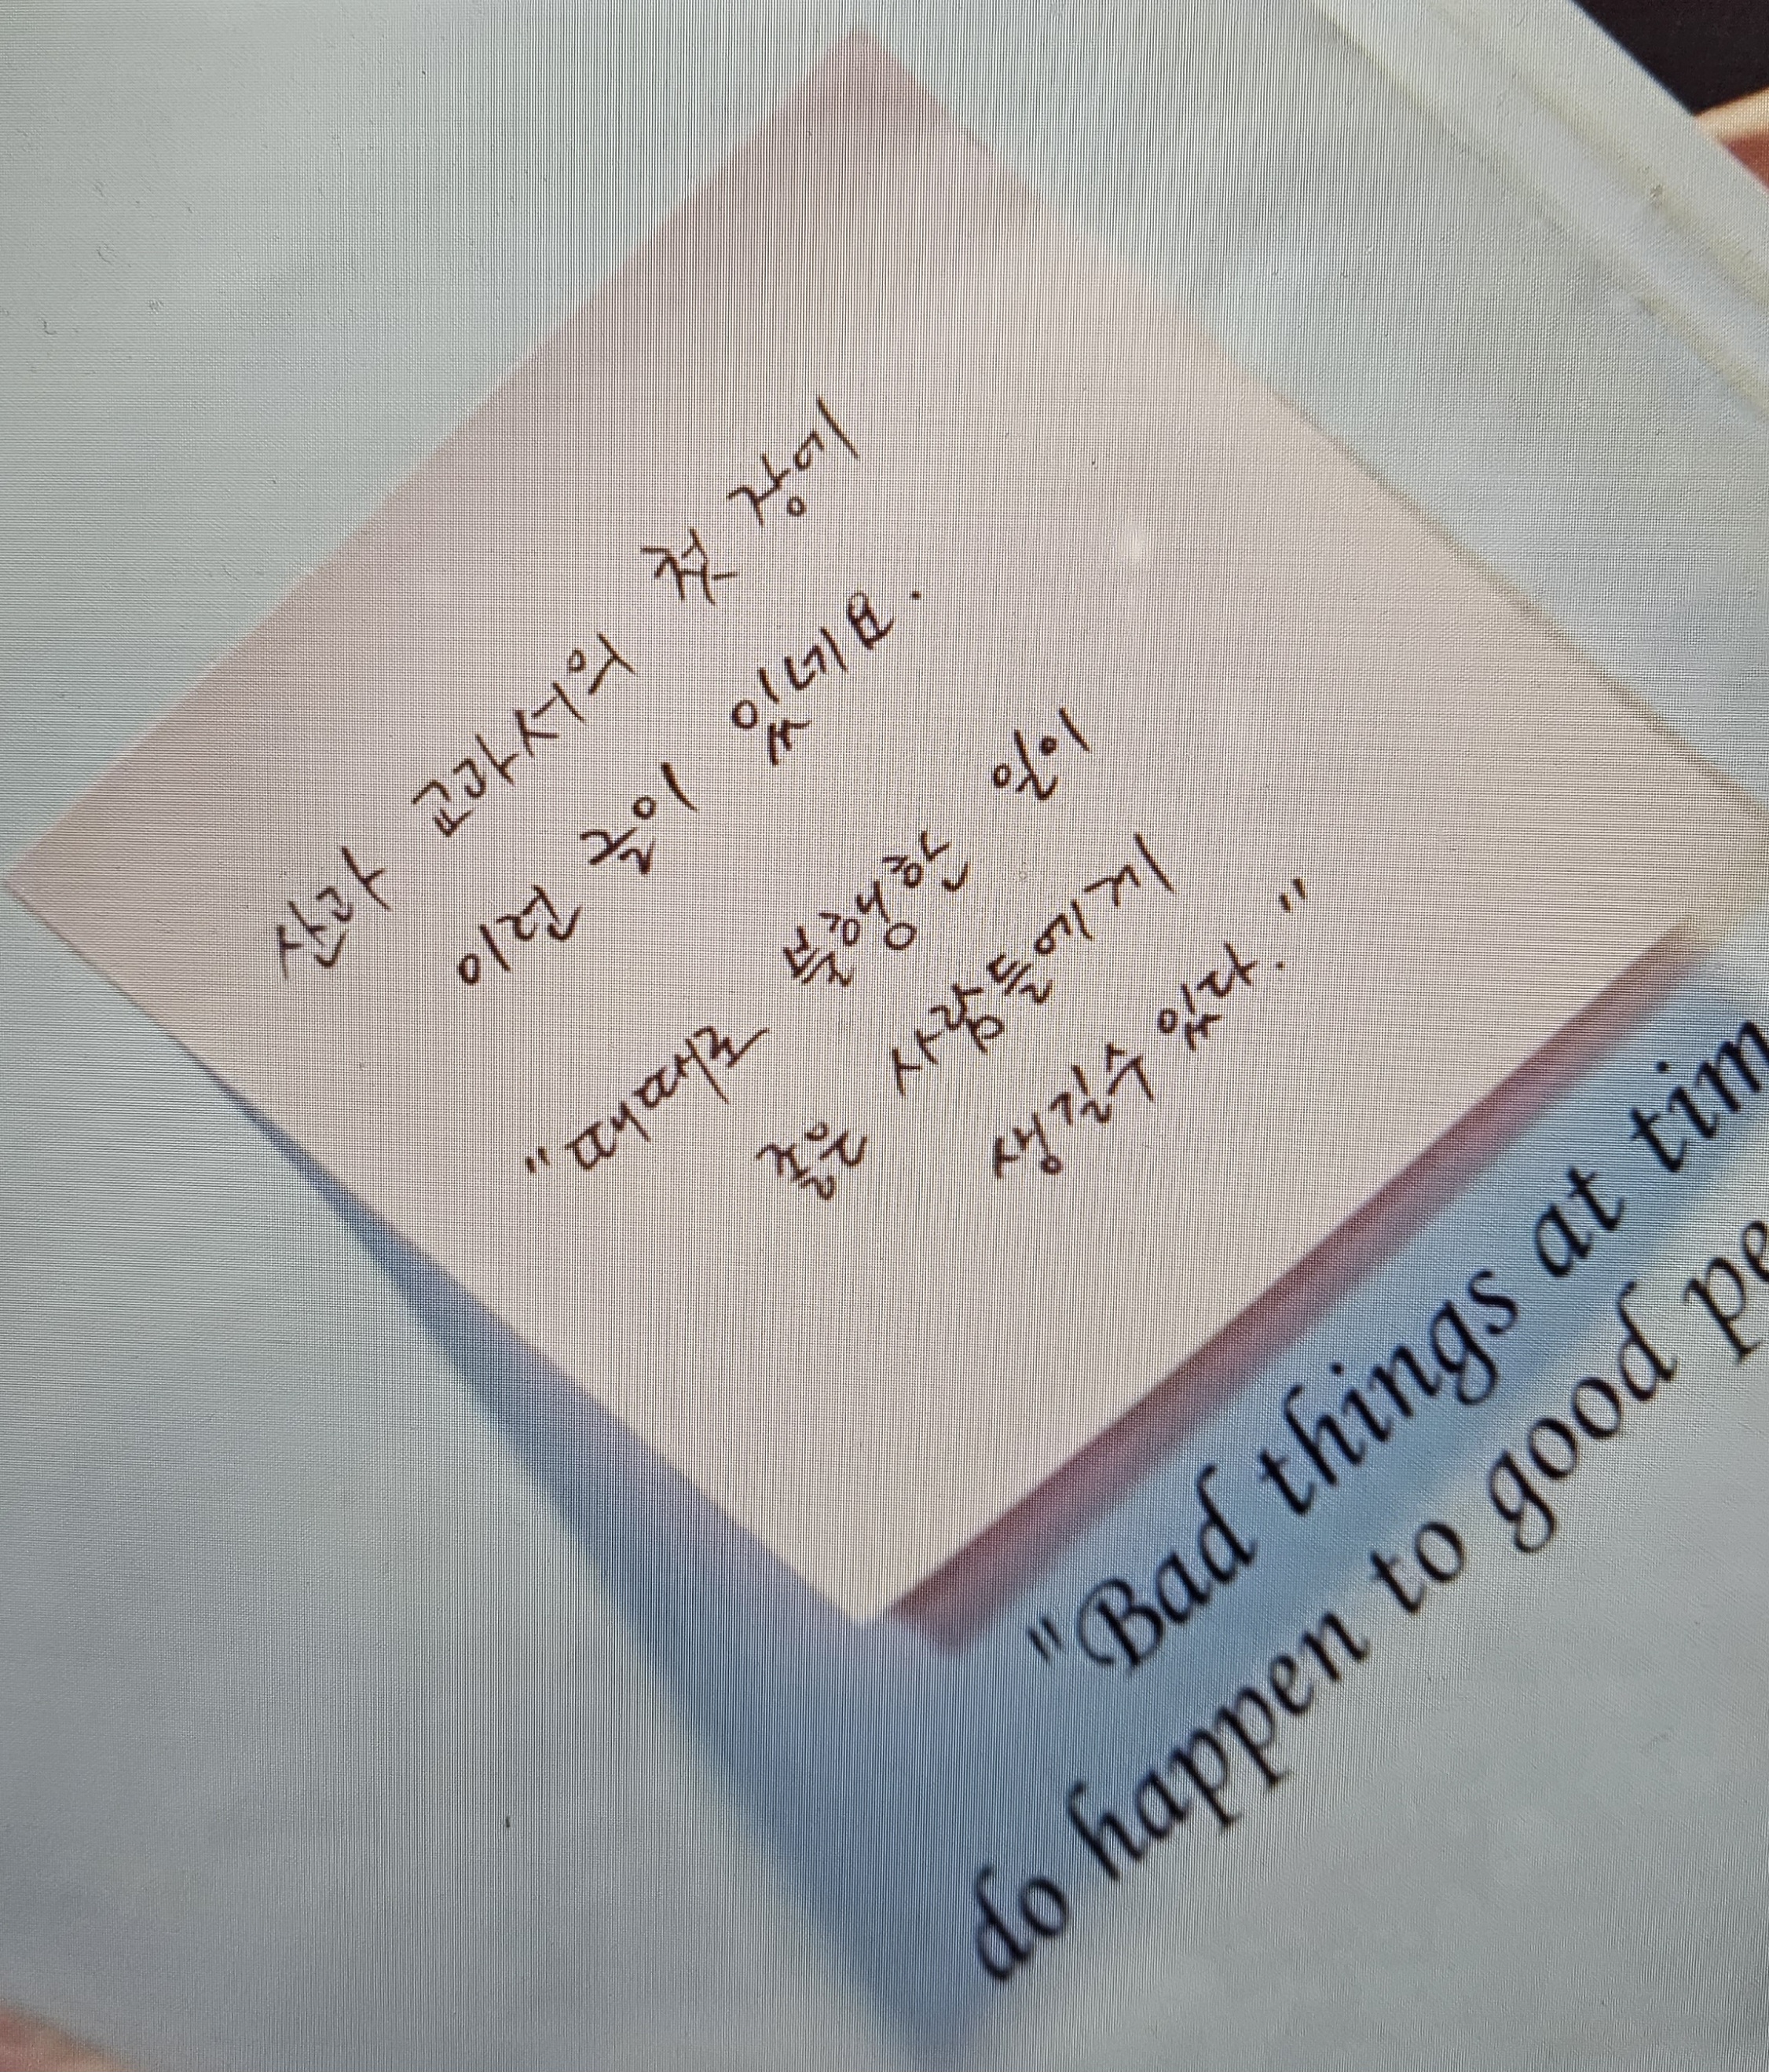 산과 교과서의 첫 장에
이런 글이 있네요.
"때때로 불행한 일이
좋은 사람들에게
생길수 있다."
"Bad things at tim
do happen to good pe